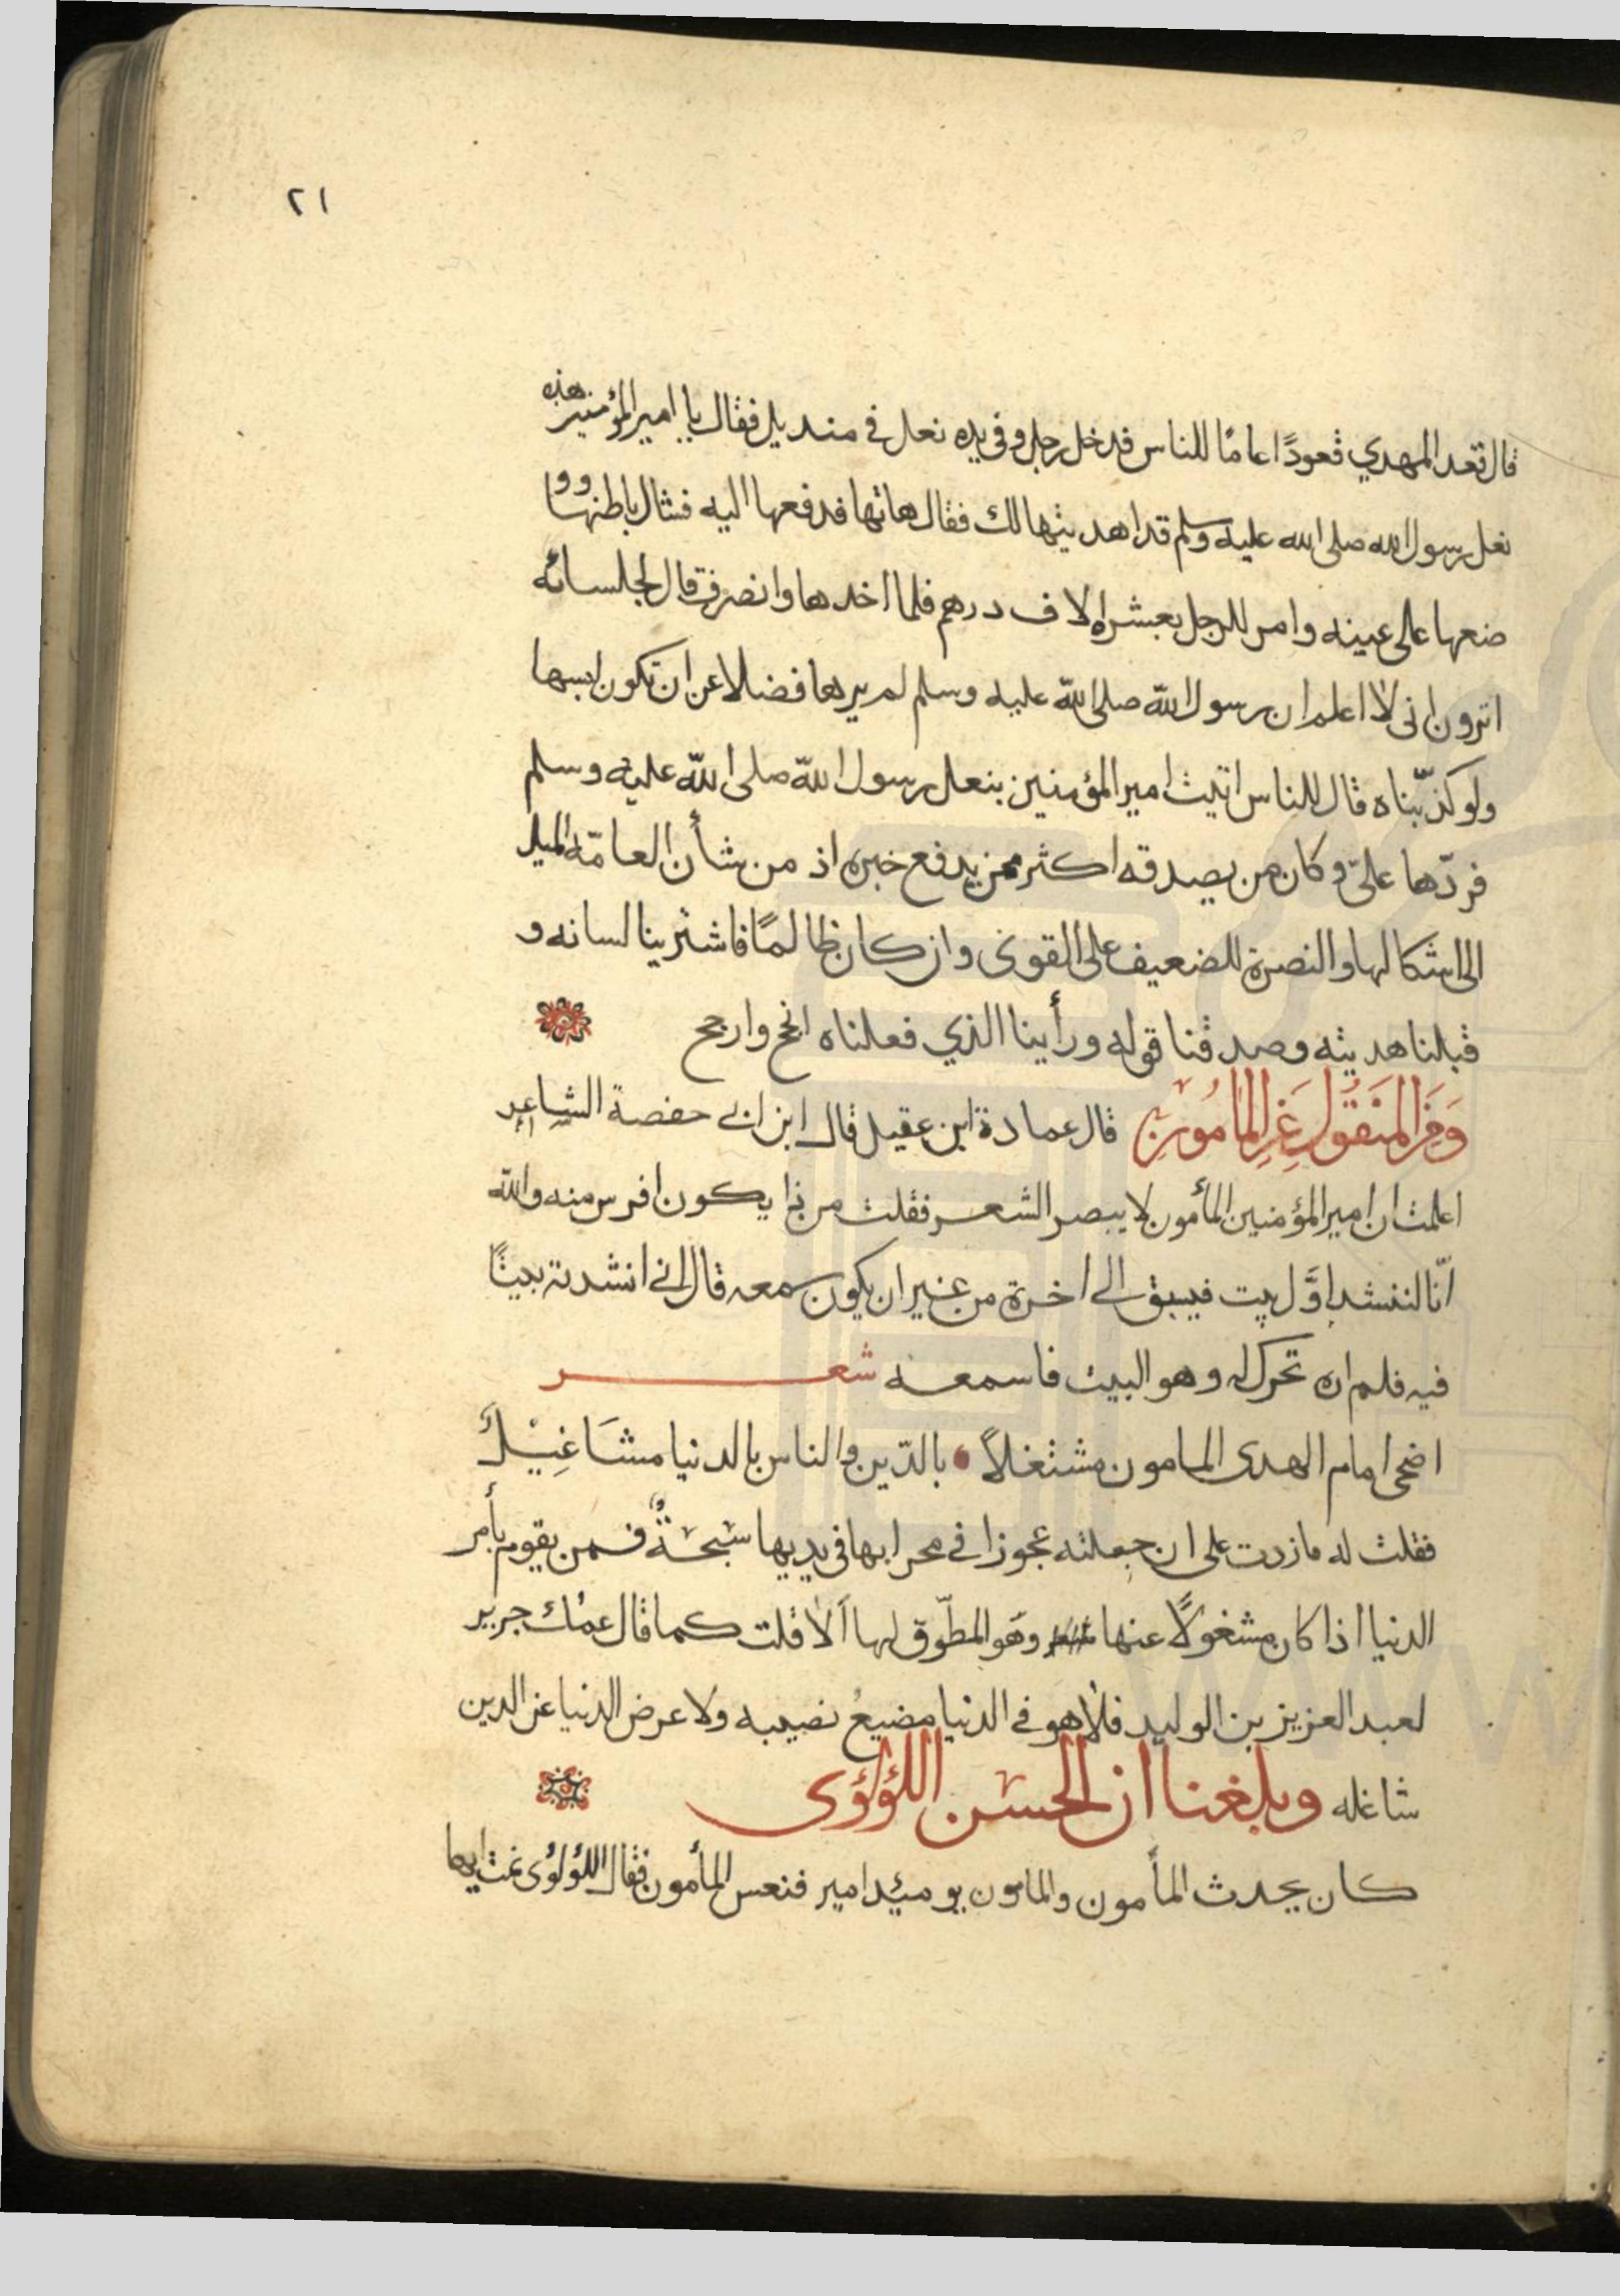 ٢١
قال قعد المهدي قعودًا عامًا للناس فدخل رجل وفى يده نعل فى منديل فقال يا امير المؤمنين هذه
نعل رسول الله صلى الله عليه وسلم قد اهديتها لك فقال هاتها فدفعها اليه فشال باطنها و و
ضعها على عينه وامر للرجل بعشرة الاف درهم فلما اخدها وانصرف قال لجلسائه
اترون انى لا اعلم ان رسول الله صلى الله عليه وسلم لم يرها فضلا عن ان تكون لبسها
ولو كذّبناه قال للناس اتيت امير المؤمنين بنعل رسول الله صلى الله عليه وسلم
فردّها علىّ وكان من يصدقه اكثر ممن يدفع خبره اذ من شأن العامّة الميل
الى اشكالها والنصرة للضعيف على القوى وان كان ظالمًا فاشترينا لسانه و
قبلنا هديته وصدقنا قوله ورأينا الذي فعلناه انجح وارجح
وَمِنَ المَنقُول عَنِ المَامُونِ قال عمادة ابن عقيل قال ابن ابى حفصة الشاعر
اعلمت ان امير المؤمنين المأمون لا يبصر الشعر فقلت من ذا يكون افرس منه والله
انّا لننشد اوَّل بيت فيسبق الى اخرة من غير ان يكون سمعه قال انى انشدته بيتًا
فيه فلم اره تحرك له وهو البيت فاسمعه شعر
اضحى امام الهدى المامون مشتغلاً بالدّين والناس بالدنيا مشَاغِيْلُ
فقلت له ما زدت على ان جعلته عجوزا فى محرابها فى يديها سُبْحَةٌ فمن يقوم بأمر
الدنيا اذا كان مشغولاً عنها وهو المطّوق لها ألا قلت كما قال عمك جرير
لعبد العزيز بن الوليد فلا هو فى الدنيا مضيعُ نصيبه ولا عرض الدنيا عن الدين
شاغله وبلغنا ان الحسن اللؤلؤى
كان يحدث المأمون والمامون يومئد امير فنعس المأمون فقال اللؤلؤى نمت ايها